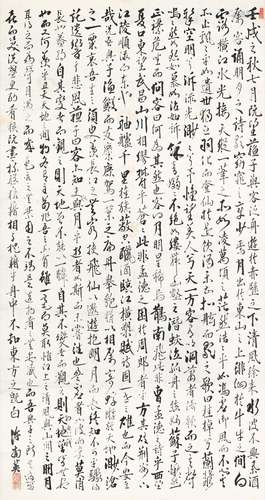 壬戌之秋七月既望蘇子與客泛舟遊於赤壁之下清風徐來水波不興舉酒
屬客誦明月之詩歌窈窕之章少焉月出於東山之上徘徊於斗牛之間白
露橫江水光接天縱一葦之所如凌萬頃之茫然浩浩乎如馮虛御風而不知其所
止飄飄乎如遺世獨立羽化而登仙於是飲酒樂甚扣舷而歌之歌曰桂棹兮蘭槳
擊空明兮泝流光渺渺兮予懷望美人兮天一方客有吹洞簫者倚歌而和之其聲嗚
嗚然如怨如慕如泣如訴餘音嫋嫋不絕如縷舞幽壑之潛蛟泣孤舟之嫠婦蘇子愀然
正襟危坐而問客曰何為其然也客曰月明星稀烏鵲南飛此非曹孟德之詩乎西
望夏口東望武昌山川相繆鬱乎蒼蒼此非孟德之困於周郎者乎方其破荊州下
江陵順流而東也舳艫千里旌旗蔽空釃酒臨江橫槊賦詩固一世之雄也而今安在哉況吾與子漁樵於
江渚之上侶魚蝦而友麋鹿駕一葉之扁舟舉匏樽以相屬寄蜉蝣於天地渺滄海
之一粟哀吾生之須臾羨長江之無窮挾飛仙以遨遊抱明月而長終知不可乎驟得
託遺響於悲風蘇子曰客亦知夫水與月乎逝者如斯而未嘗往也盈虛者如彼而卒莫消
長也蓋將自其變者而觀之則天地曾不能以一瞬自其不變者而觀之則物與我皆無盡也
而又何羨乎且夫天地之間物各有主苟非吾之所有雖一毫而莫取惟江上之清風與山間之明月
耳得之而為聲目遇之而成色取之無禁用之不竭是造物者之無盡藏也而吾與子之所共適
客喜而笑洗盞更酌肴核既盡杯盤狼藉相與枕藉乎舟中不知東方之既白